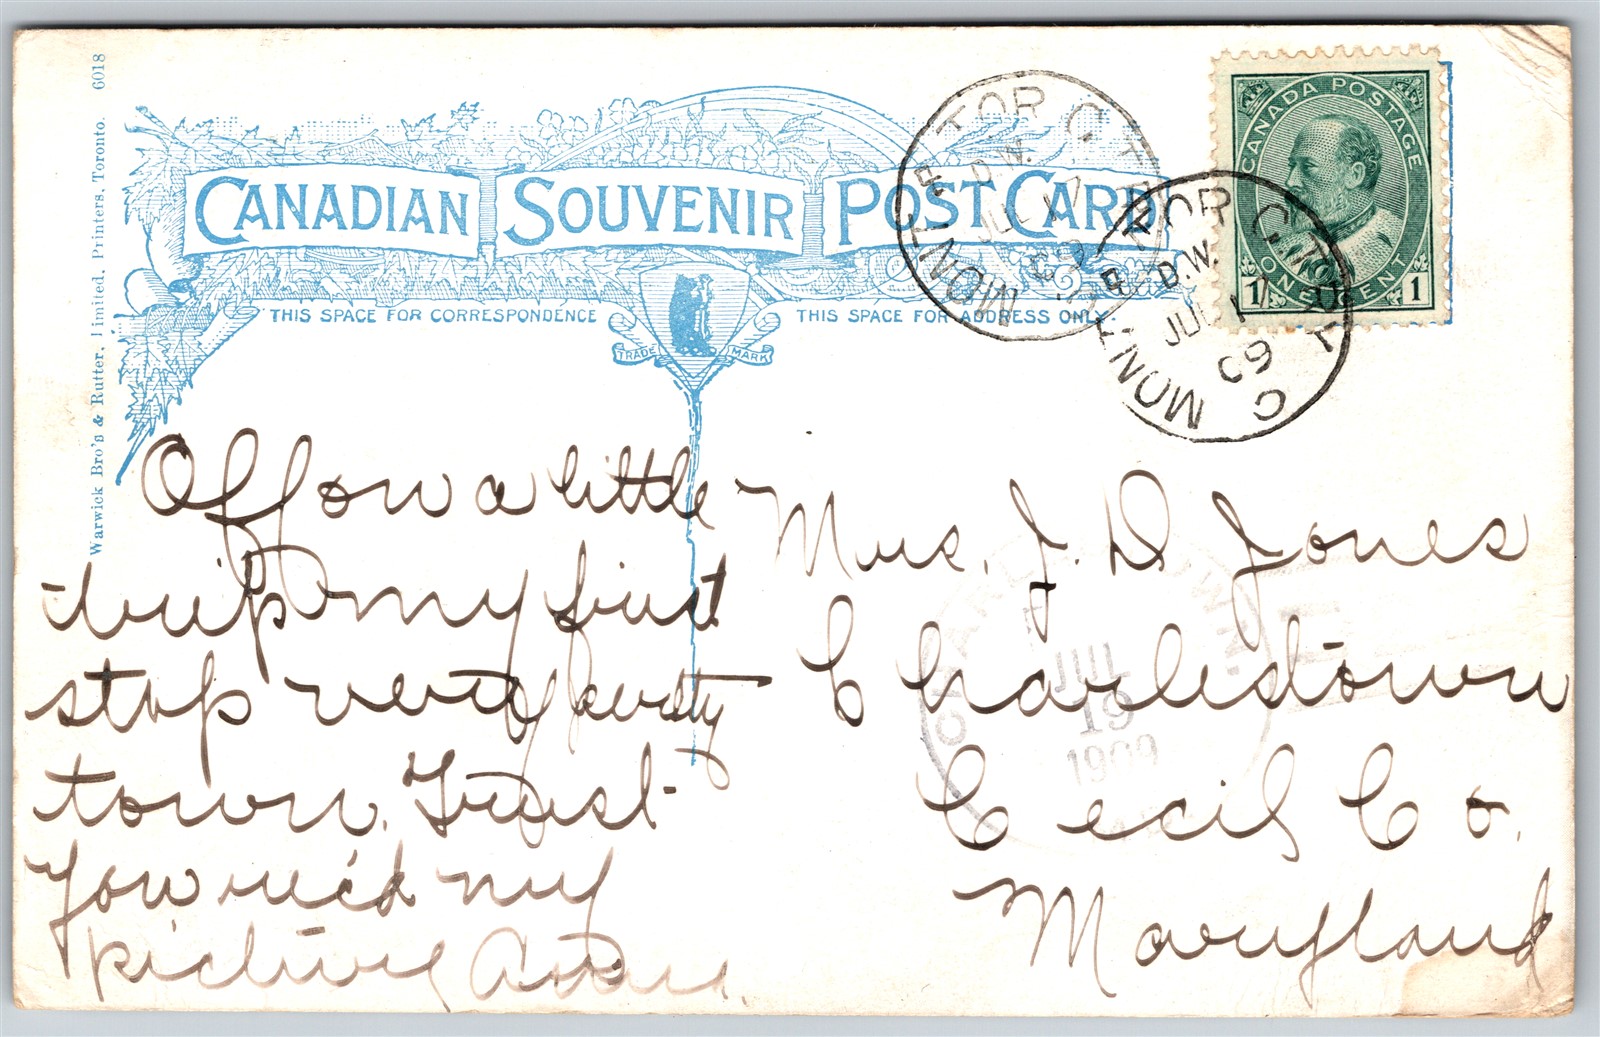 Warwick Bro's & Rutter, Limited, Printers, Toronto. 6018
CANADIAN SOUVENIR POST CARD
THIS SPACE FOR CORRESPONDENCE
THIS SPACE FOR ADDRESS ONLY.
TRADE MARK
CANADA POSTAGE
ONE CENT
1 1
TOR
D.W.
JUL 17
09
MONT
TOR
D.W.
JUL 17
09
MONT
Off on a little
trip my first
stop very pretty
town. Trust
you rec'd my
picture
Mrs. J. D Jones
Charlestown
Cecil Co.
Maryland
JUL
19
1909